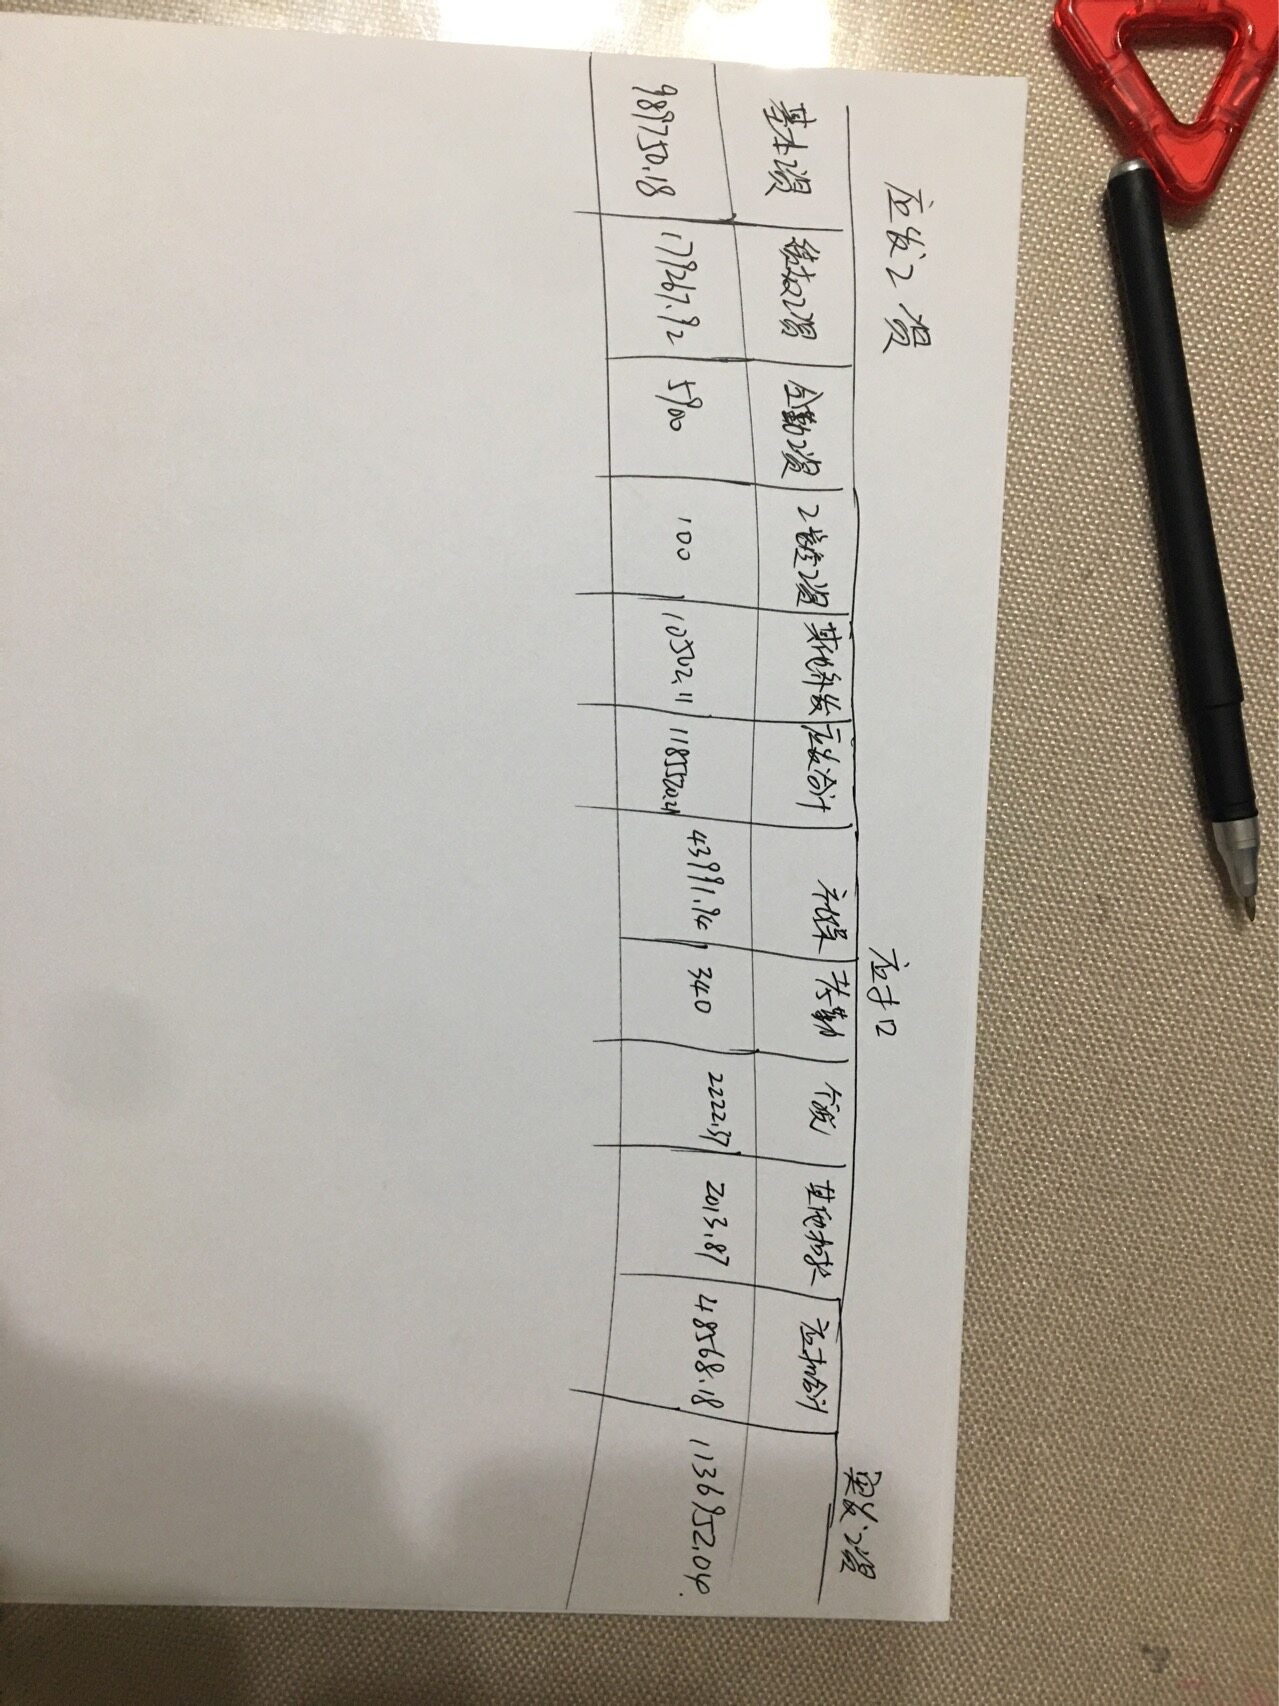 应发工资 应扣 实发工资
基本工资 绩效工资 全勤工资 其他补发 应发合计 社保 考勤 个税 其他扣款 应扣合计
989750.18 179267.92 5900 100 10502.11 1185520.21 43991.94 340 2222.37 2013.87 48568.18 1136952.04